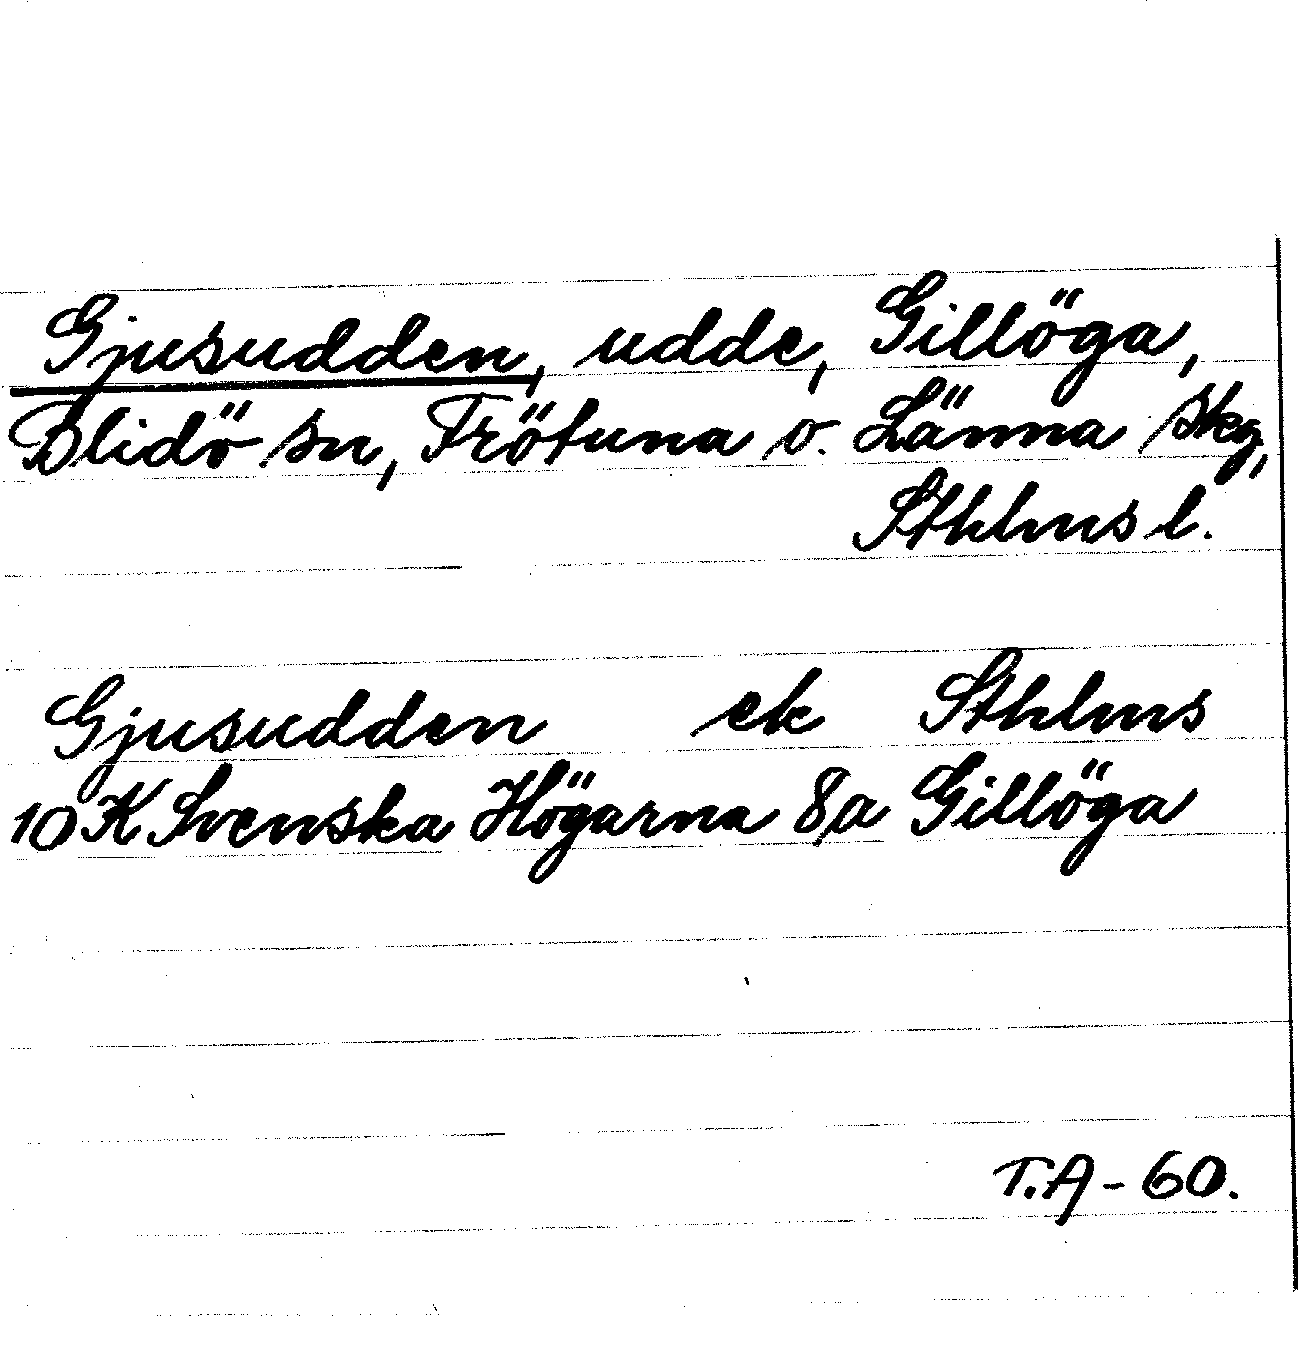 Gjusudden, udde, Gillöga,
Blidö sn, Frötuna o. Länna skg,
Sthlms l.
Gjusudden ek Sthlms
10 K Svenska Högarna 8a Gillöga
T.A - 60.